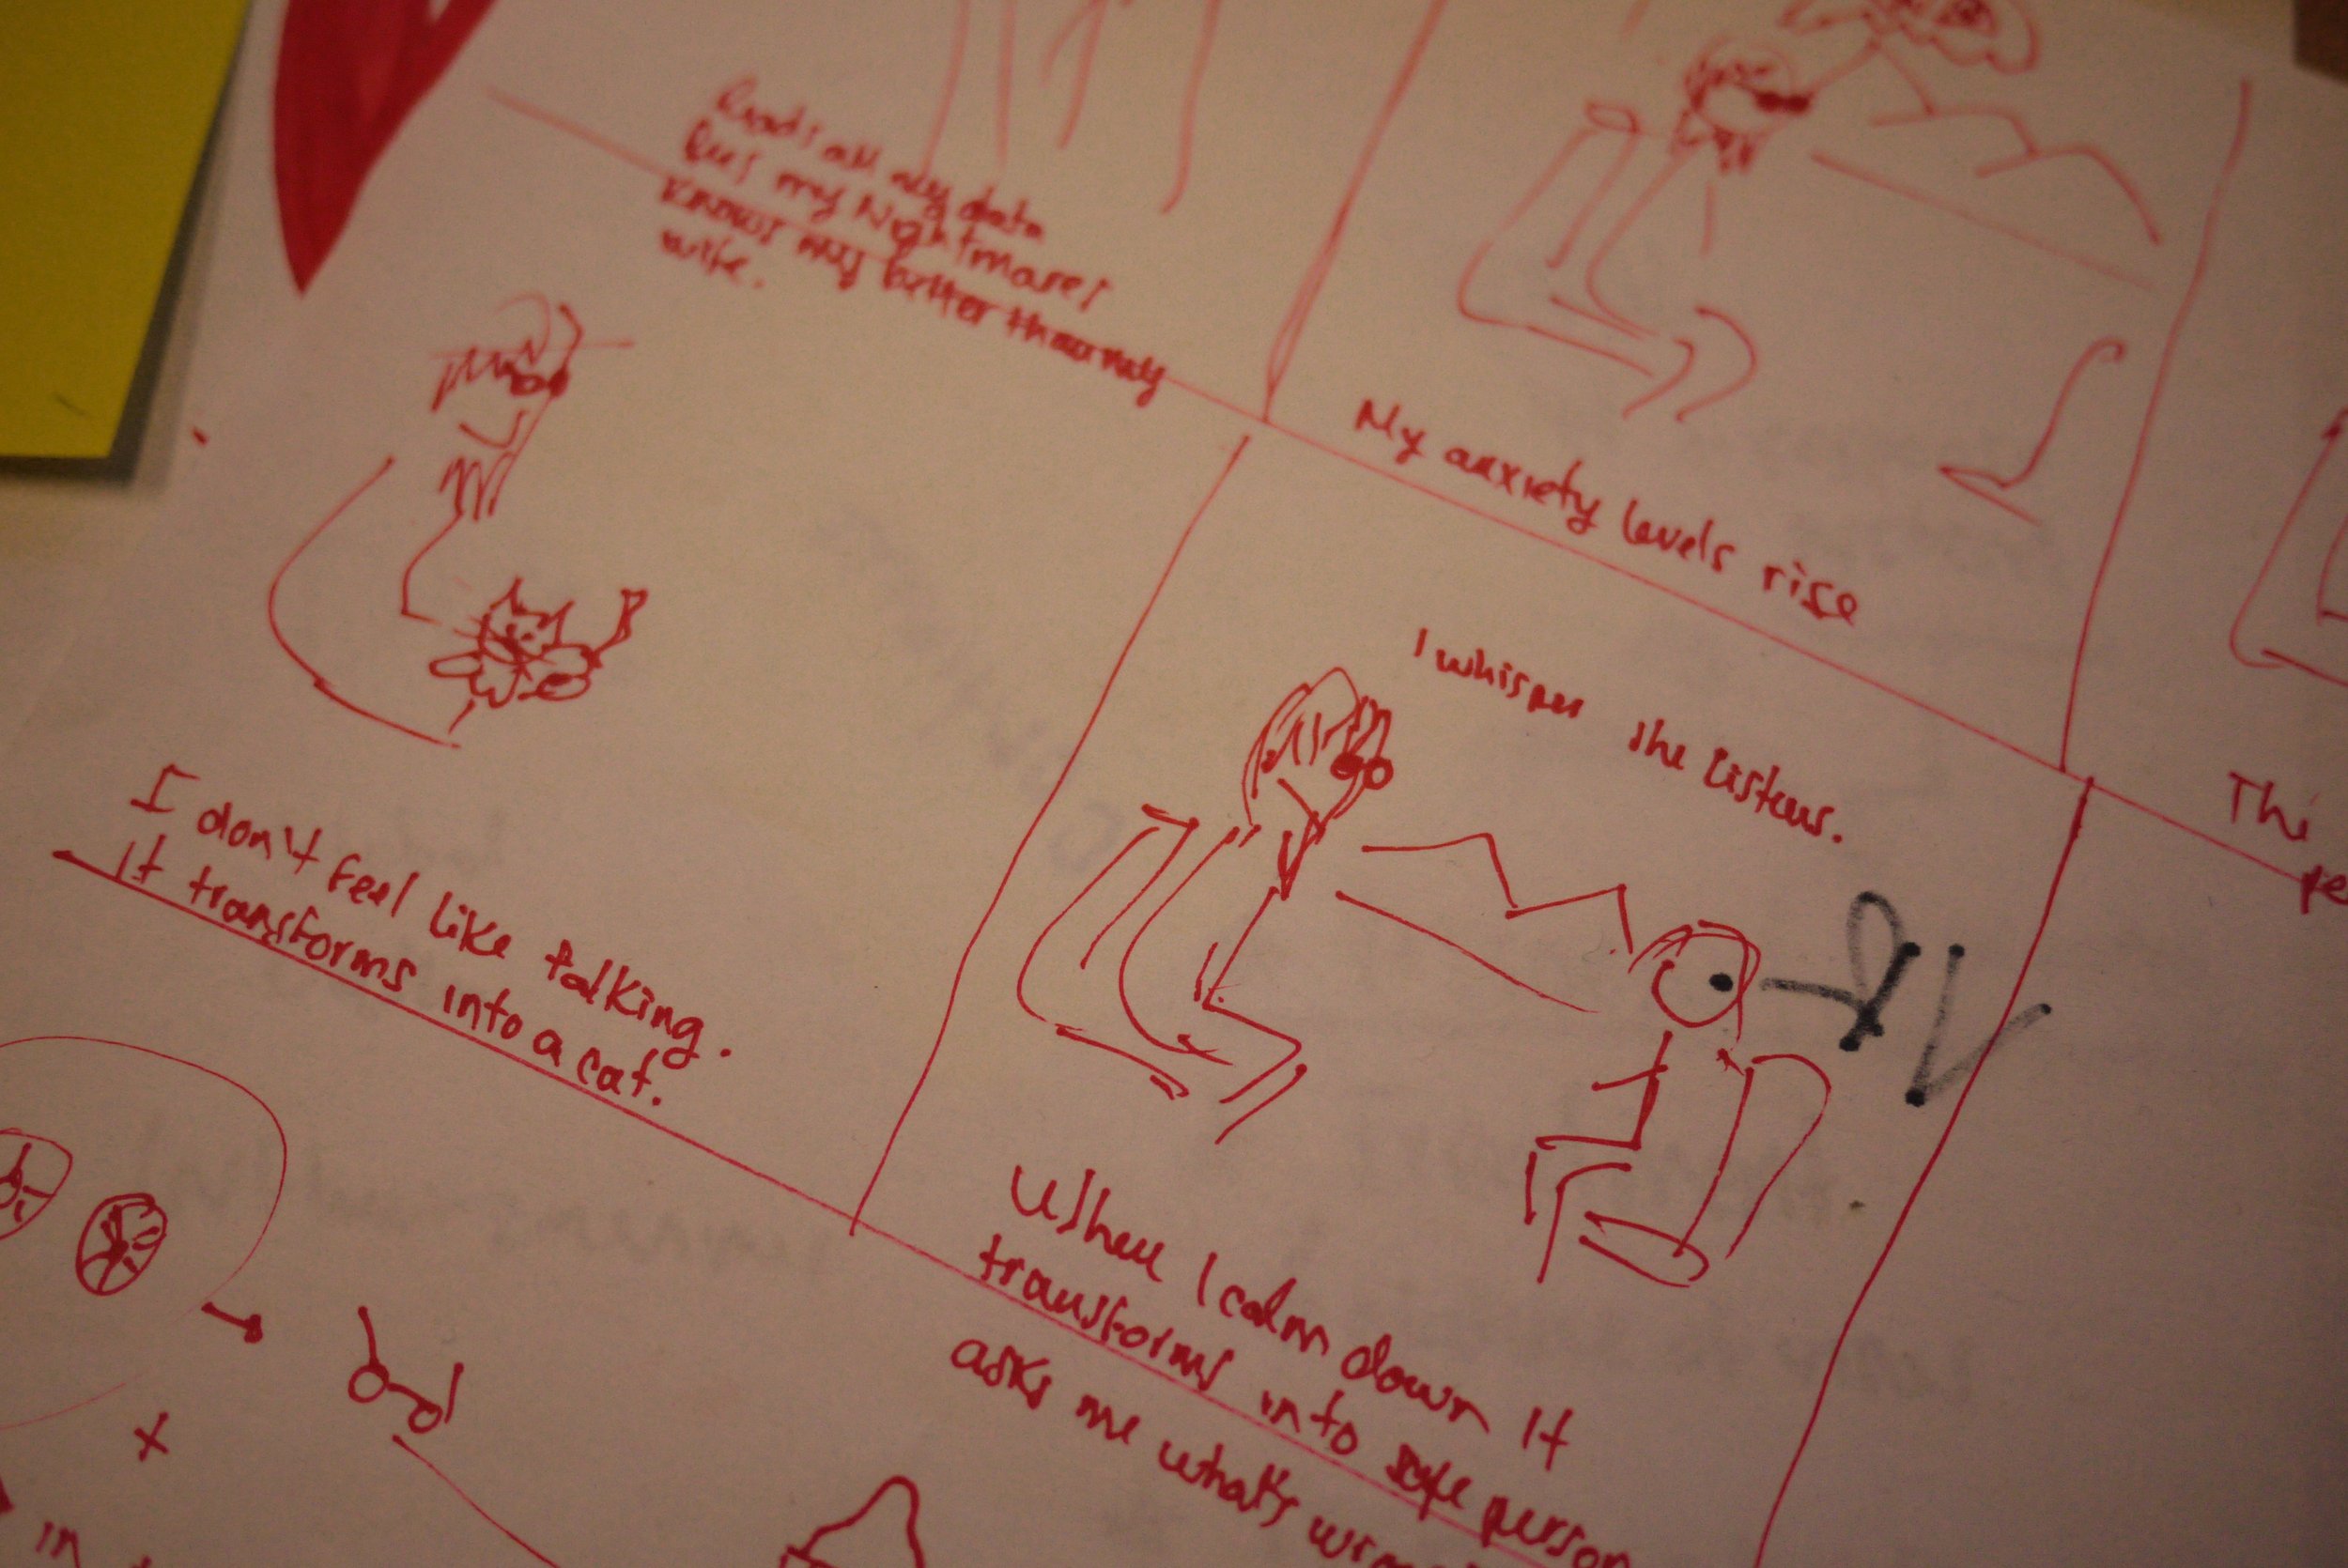 Reads all my data
Sees my Nightmares
Knows my better than my
wife.
My anxiety levels rise
I don't feel like talking.
It transforms into a cat.
I whisper she listens.
When I calm down It
transforms into person
asks me what's
Thi
pe
in